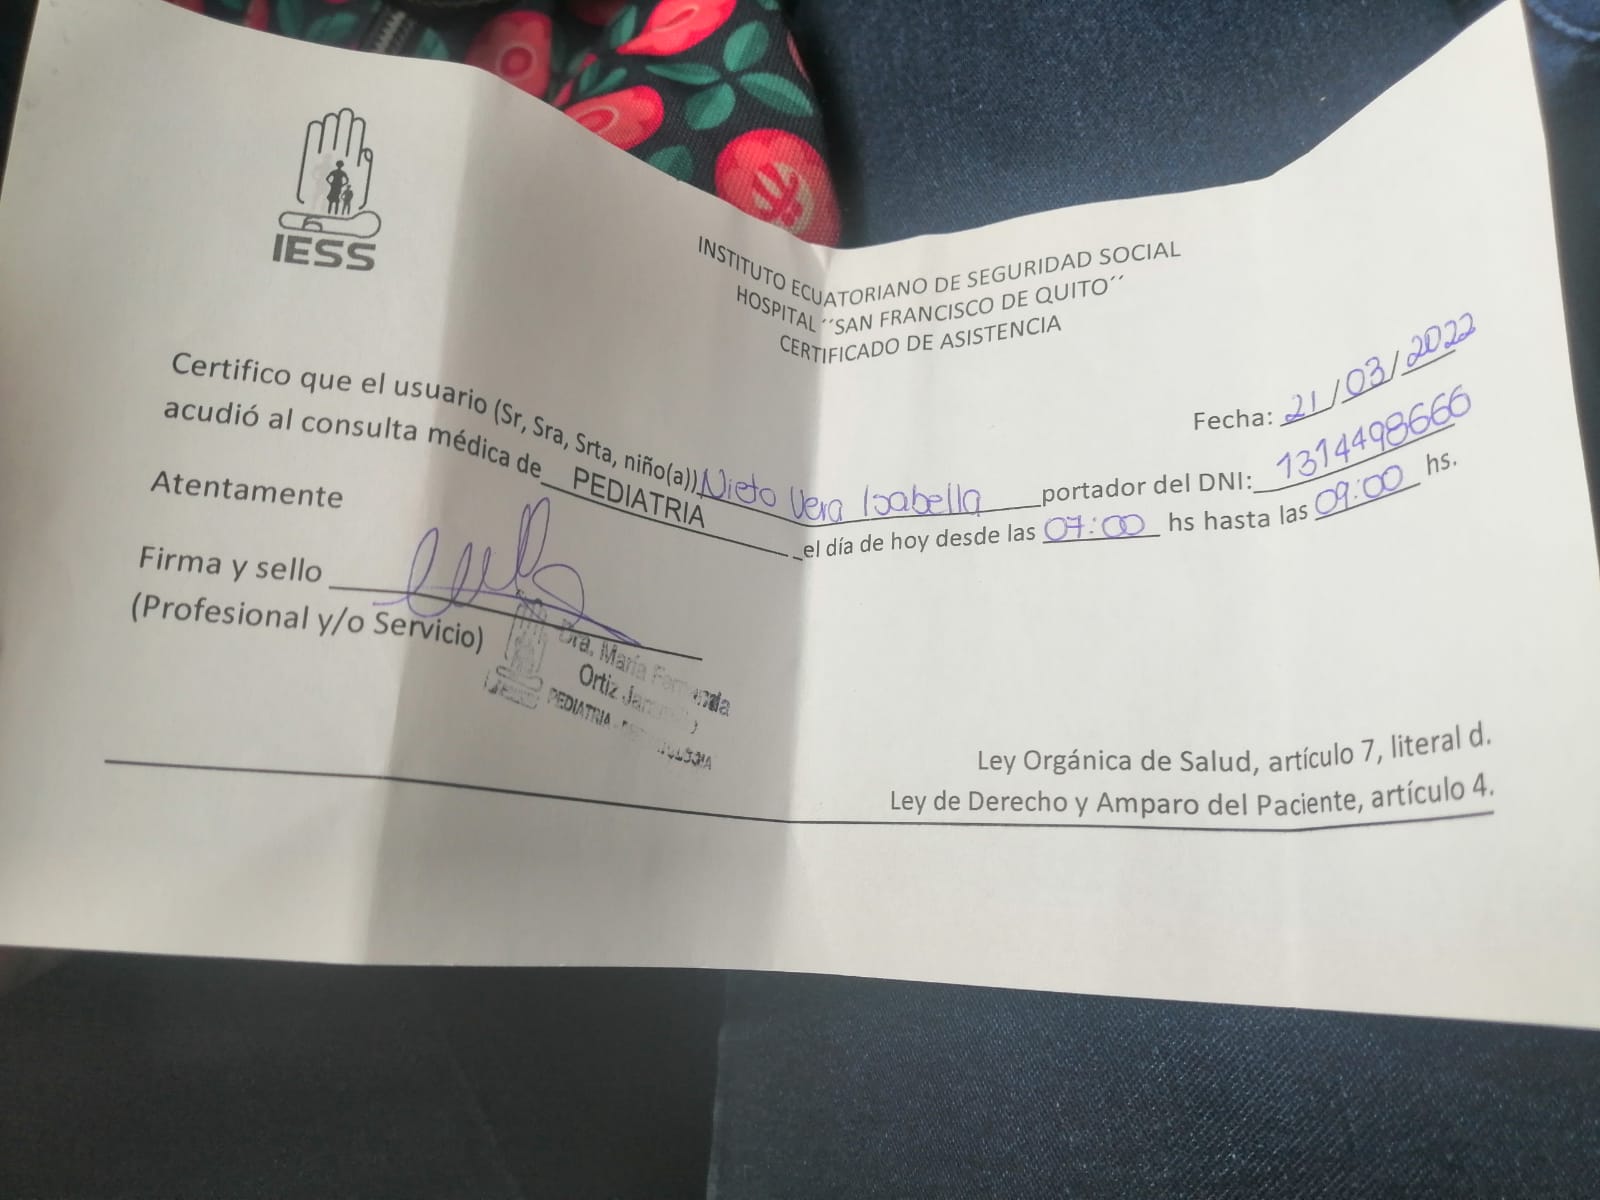 IESS
INSTITUTO ECUATORIANO DE SEGURIDAD SOCIAL
HOSPITAL ´´SAN FRANCISCO DE QUITO´´
CERTIFICADO DE ASISTENCIA
Fecha: 21/03/2022
Certifico que el usuario (Sr, Sra, Srta, niño(a)) Nieto Vera Isabella portador del DNI: 1314498666
acudió al consulta médica de PEDIATRIA el día de hoy desde las 07:00 hs hasta las 09:00 hs.
Atentamente
Firma y sello
(Profesional y/o Servicio)
Dra. María Fernanda
Ortiz
PEDIATRIA
Ley Orgánica de Salud, artículo 7, literal d.
Ley de Derecho y Amparo del Paciente, artículo 4.